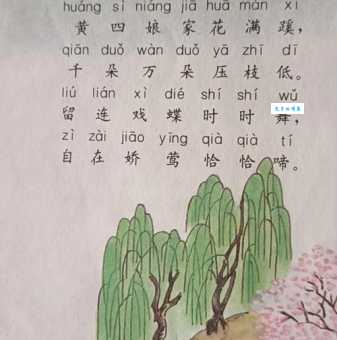 huáng sì niáng jiā huā mǎn xī
黄四娘家花满蹊，
qiān duǒ wàn duǒ yā zhī dī
千朵万朵压枝低。
liú lián xì dié shí shí wǔ
留连戏蝶时时舞，
zì zài jiāo yīng qià qià tí
自在娇莺恰恰啼。